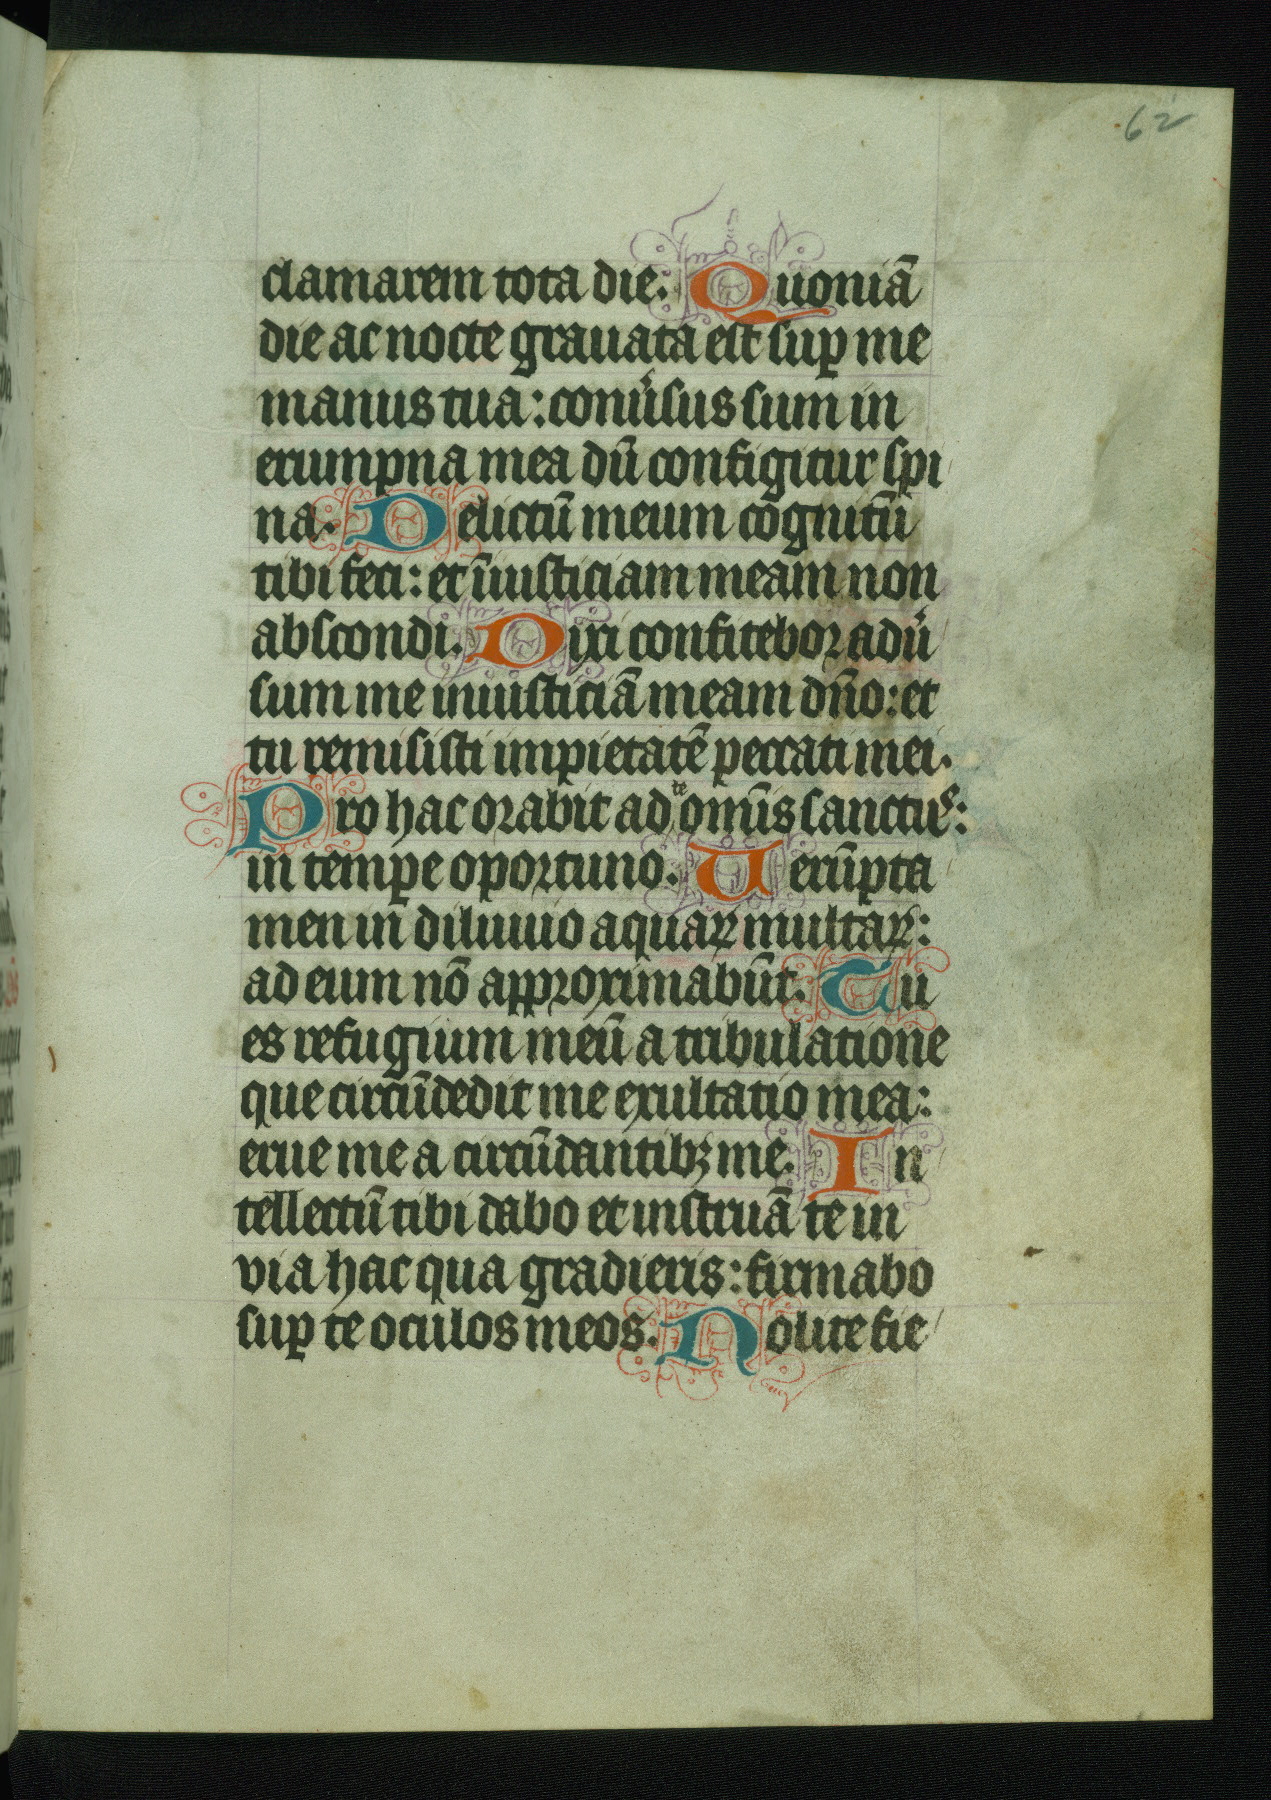 62
clamarem tota die. Quoniā
die ac nocte grauata est suꝑ me
manus tua: conu̓sus sum in
erumpna mea dū configitur spi
na. Delictū meum cognitū
tibi feci: et īiusticiam meam non
abscondi. Dixi confitebor adu̓
sum me iniusticiā meam dn̄o: et
tu remisisti impietatē peccati mei.
Pro hac orabit ad te omīs sanctus:
in tempe oportuno. Uerūpta
men in diluuio aquaꝝ multaꝝ:
ad eum nō approximabūt. Tu
es refugium meū a tribulatione
que circūdedit me exultatio mea:
erue me a circūdantibꝫ me. In
tellectū tibi dabo et instruā te in
via hac qua gradieris: firmabo
suꝑ te oculos meos. Nolite fie